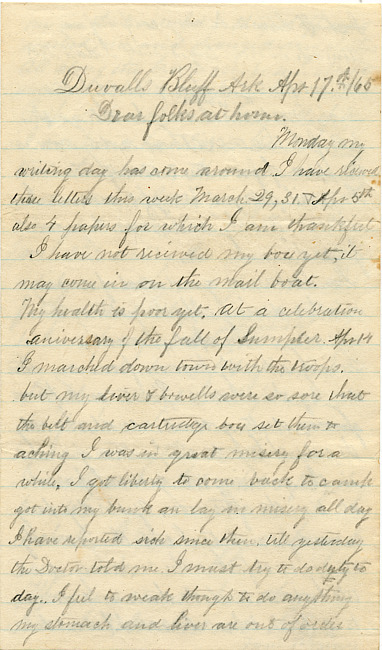 Duvalls Bluff Ark Apr 17th /65
Dear folks at home.
Monday my
writing day has come around I have recieved
three letters this week March 29, 31. & Apr 5th
also 4 papers for which I am thankful
I have not recieved my box yet, it
may come in on the mail boat.
My health is poor yet, At a celebration
aniversary of the fall of Sumpter. Apr 14
I marched down town with the troops.
but my liver & bowells were so sore that
the belt and cartridge box set them to
aching I was in great misery for a
while, I got liberty to come back to camp
got into my bunk an lay in misery all day
I have reported sick since then, till yesterday
the Doctor told me I must try to do duty to
day.. I feel to weak though to do anything
my stomach and liver are out of order